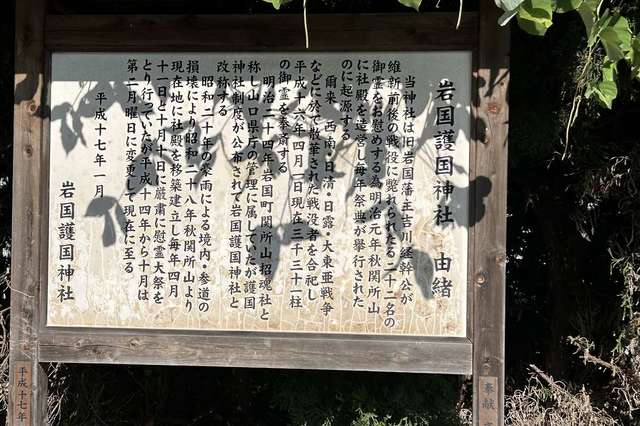 岩国護国神社 由緒
当神社は旧岩国藩主吉川経幹公が
維新前後の戦役に斃れられたる二十二名の
御霊をお慰めする為明治元年秋関所山
に社殿を造営し毎年祭典が挙行された
のに起源する
爾来 西南・日清・日露・大東亜戦争
などに於て散華された戦没者を合祀し
平成十六年四月一日現在三千三十柱
の御霊を奉斎する
明治二十四年岩国町関所山招魂社と
称し山口県庁の管理に属していたが護国
神社制度が公布されて岩国護国神社と
改称する
昭和二十年の豪雨による境内・参道の
損壊により昭和二十八年秋関所山より
現在地に社殿を移築建立し毎年四月
十一日と十月十日に厳粛に慰霊大祭を
とり行っていたが平成十四年から十月は
第二月曜日に変更して現在に至る
平成十七年一月
岩国護国神社
奉献
平成十七年